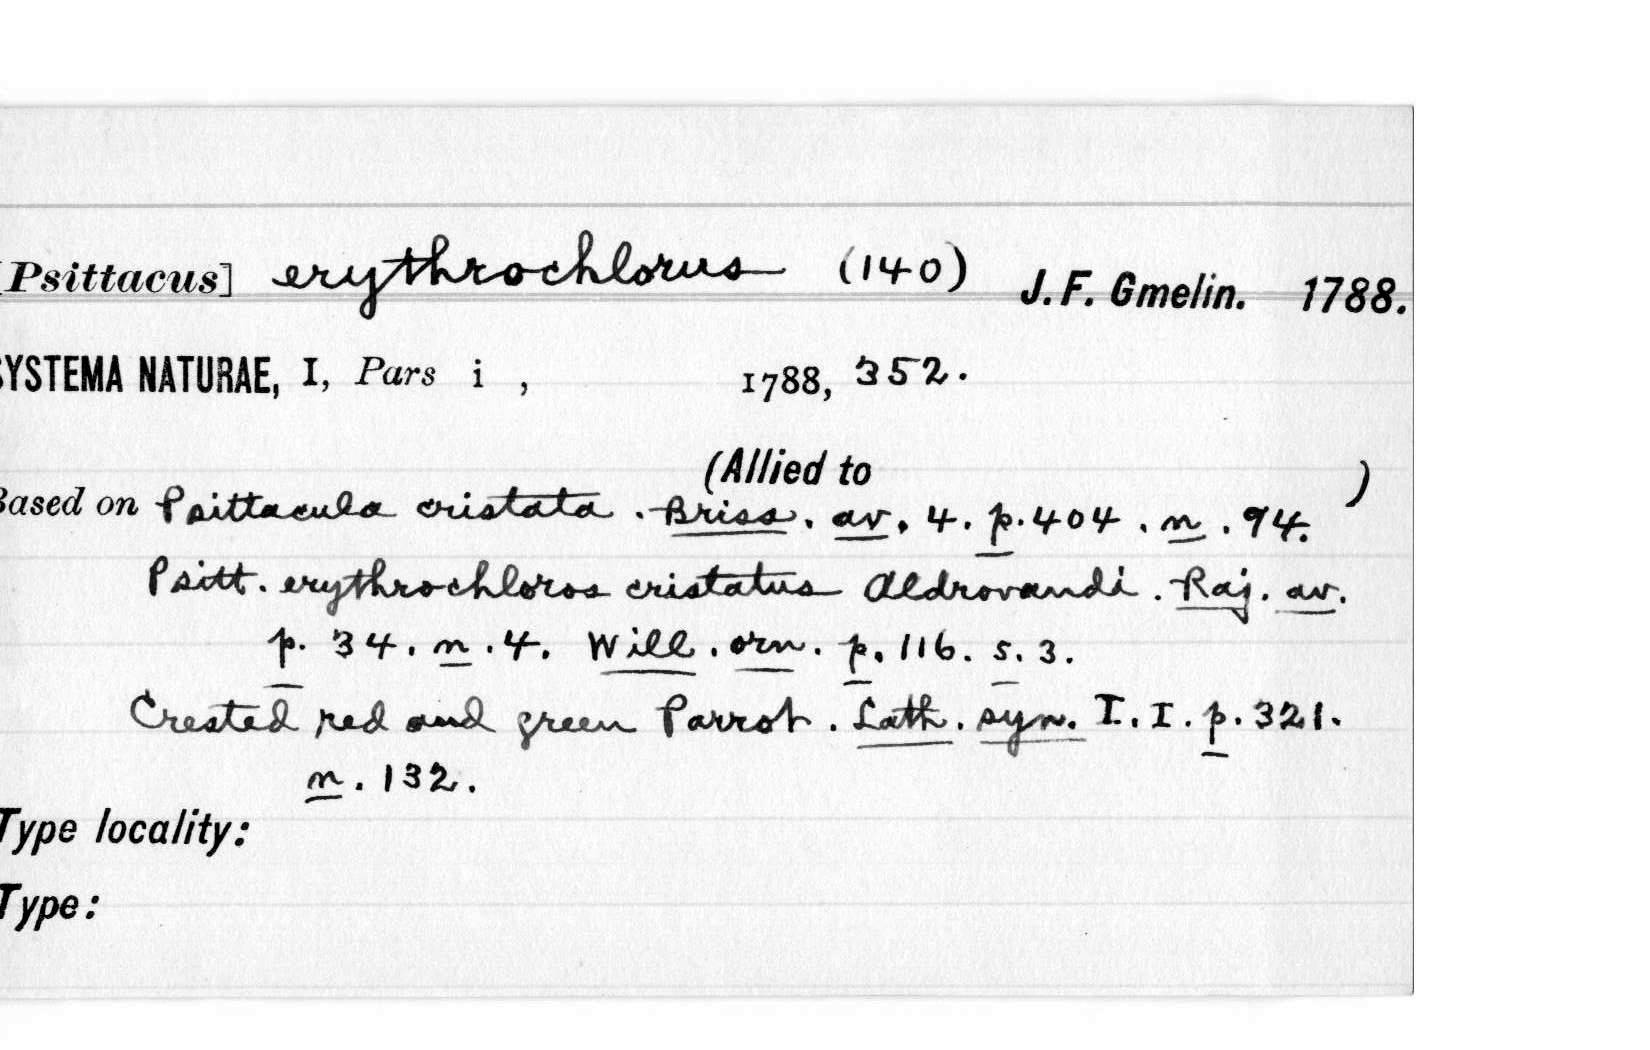 [Psittacus] erythrochlorus (140) J. F. Gmelin. 1788.
SYSTEMA NATURAE, I, Pars i , 1788, 352.
(Allied to )
Based on Psittacula cristata . Briss. av. 4. p. 404 . n . 94.
Psitt. erythrochloros cristatus Aldrovandi . Raj. av.
p. 34. n . 4. Will . orn . p. 116. s. 3.
Crested red and green Parrot . Lath . syn. I. I . p. 321.
n . 132.
Type locality:
Type: